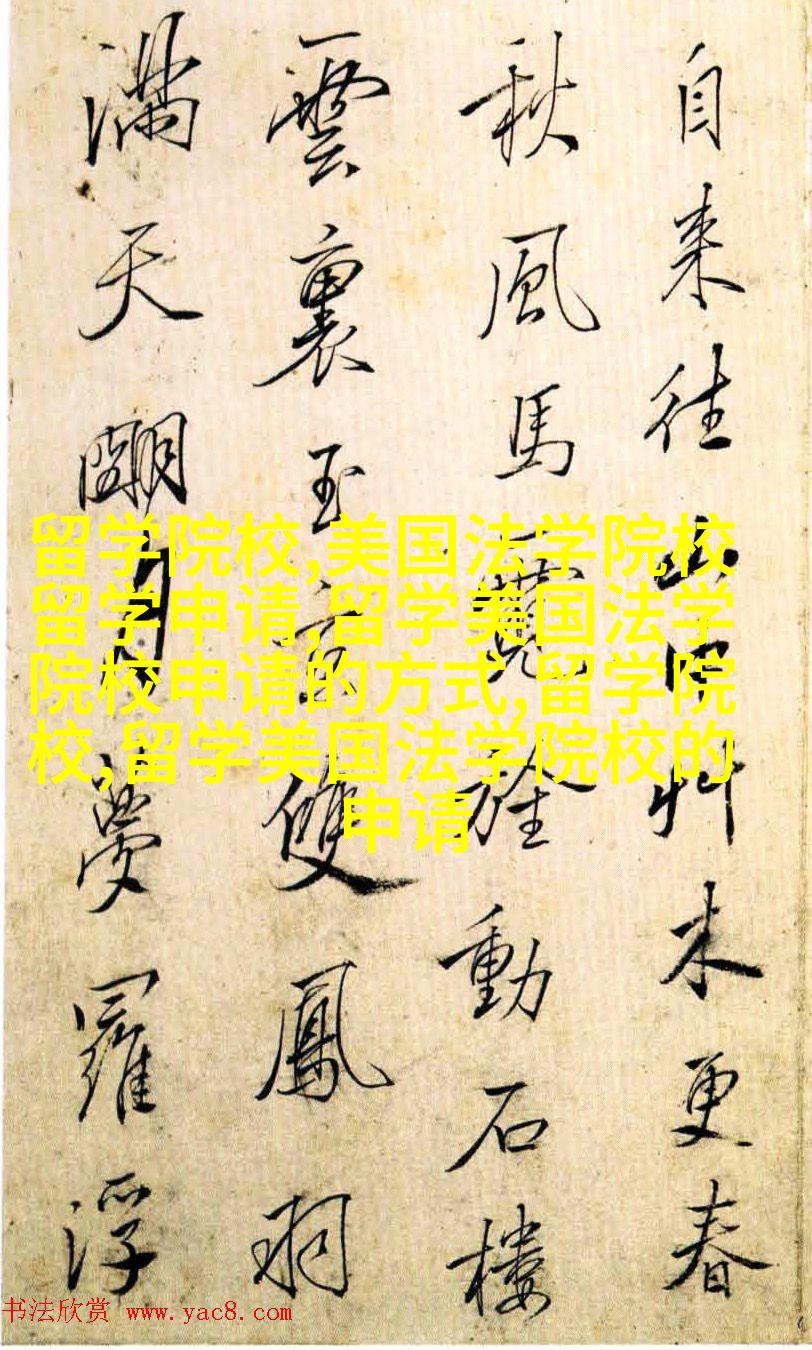 自来往山中草木更春
秋風馬
動石樓
雲裏玉京雙鳳羽
滿天明月夢羅浮
留学院校,美国法学院校
留学申请,留学美国法学
院校申请的方式,留学院
校,留学美国法学院校的
申请
书法欣赏 www.yac8.com